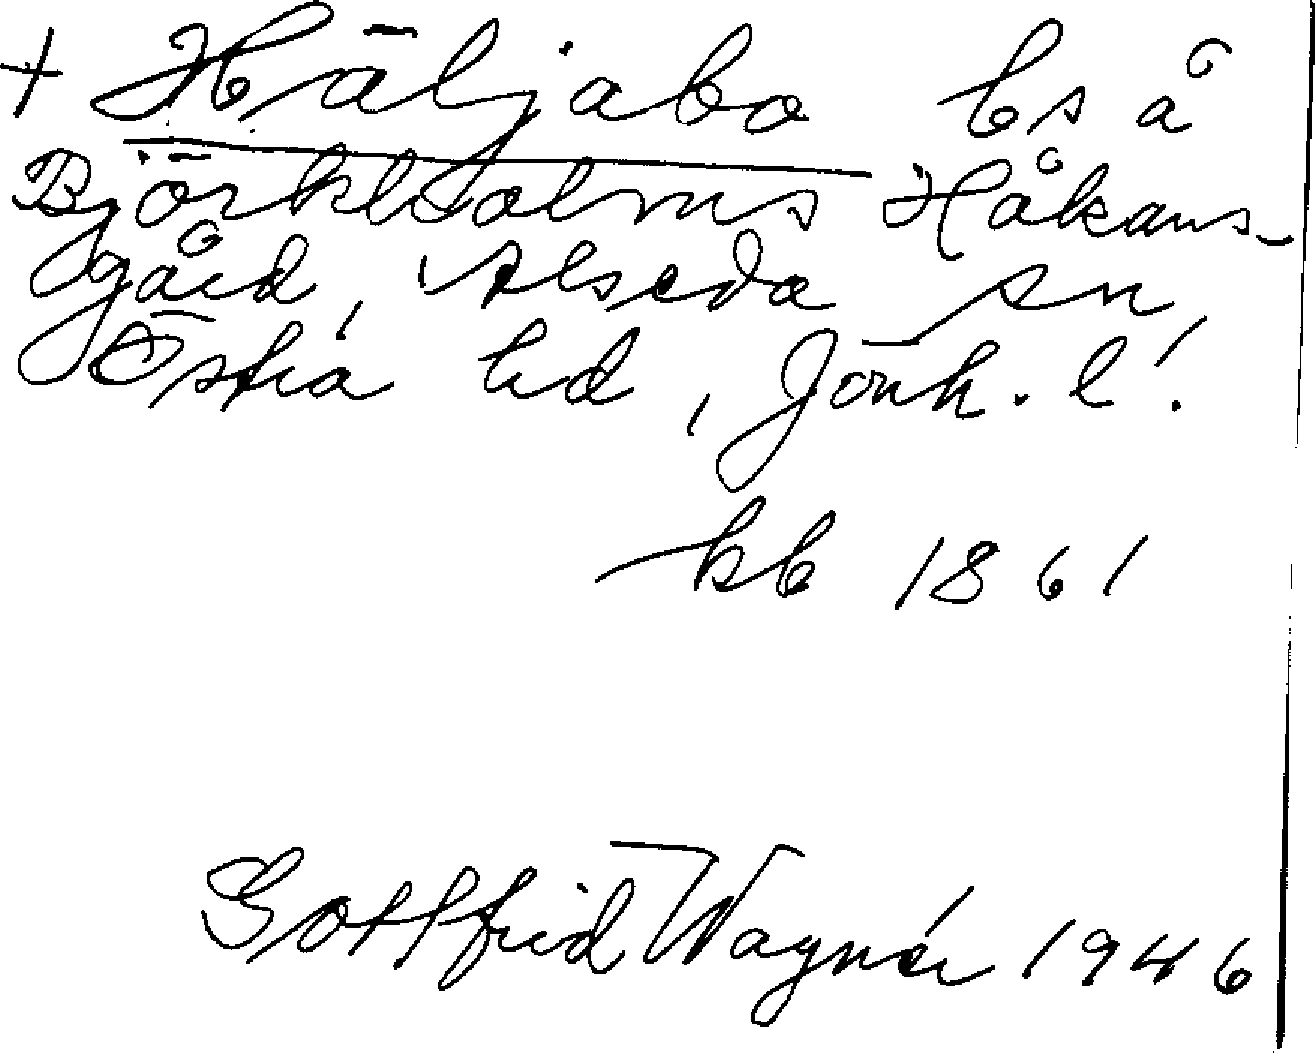 + Häljabo bs å
Björkholms Håkans-
gård, Alseda sn,
Östra hd, Jönk. l.
kb 1861
Gottfrid Wagnér 1946